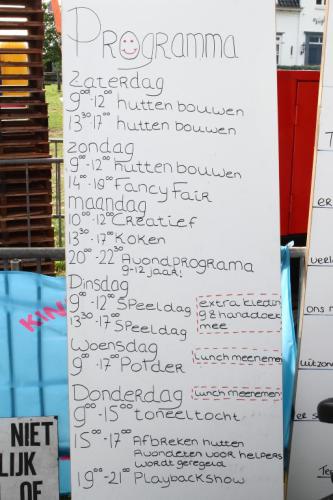 Programma
Zaterdag
9⁰⁰-12⁰⁰ hutten bouwen
13³⁰-17⁰⁰ hutten bouwen
zondag
9⁰⁰-12⁰⁰ hutten bouwen
14⁰⁰-18⁰⁰ Fancy Fair
maandag
10⁰⁰-12⁰⁰ Creatief
13³⁰-17⁰⁰ Koken
20⁰⁰-22³⁰ Avondprograma
9-12 jaar!
Dinsdag
9⁰⁰-12⁰⁰ Speeldag
13³⁰-17⁰⁰ Speeldag
extra kleding
&handdoek
mee
Woensdag
9⁰⁰-17⁰⁰ Polder
Lunch meenemen
Donderdag
Lunch meenemen
9⁰⁰-15⁰⁰ toneeltocht
15⁰⁰-17⁰⁰ Afbreken hutten
Avondeten voor helpers
wordt geregeld
19⁰⁰-21⁰⁰ Playbackshow
KIN
NIET
LIJK
OF